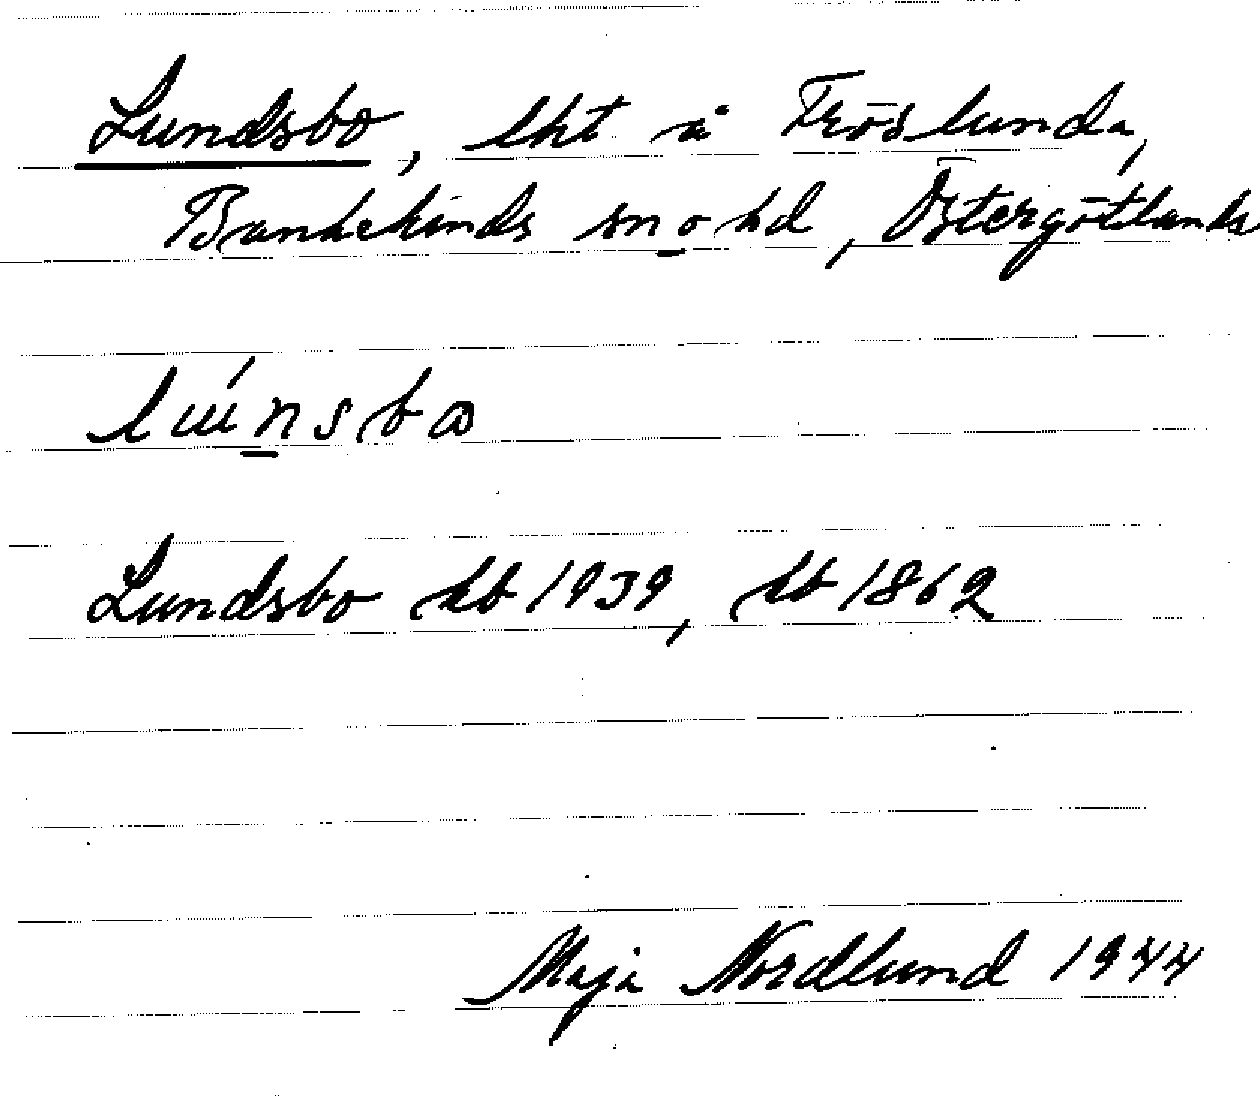 Lundsbo, lht å Fröslunda,
Bankekinds sn o hd, Östergötlands
Lundsbo kb 1939, kb 1862
Maja Nordlund 1944